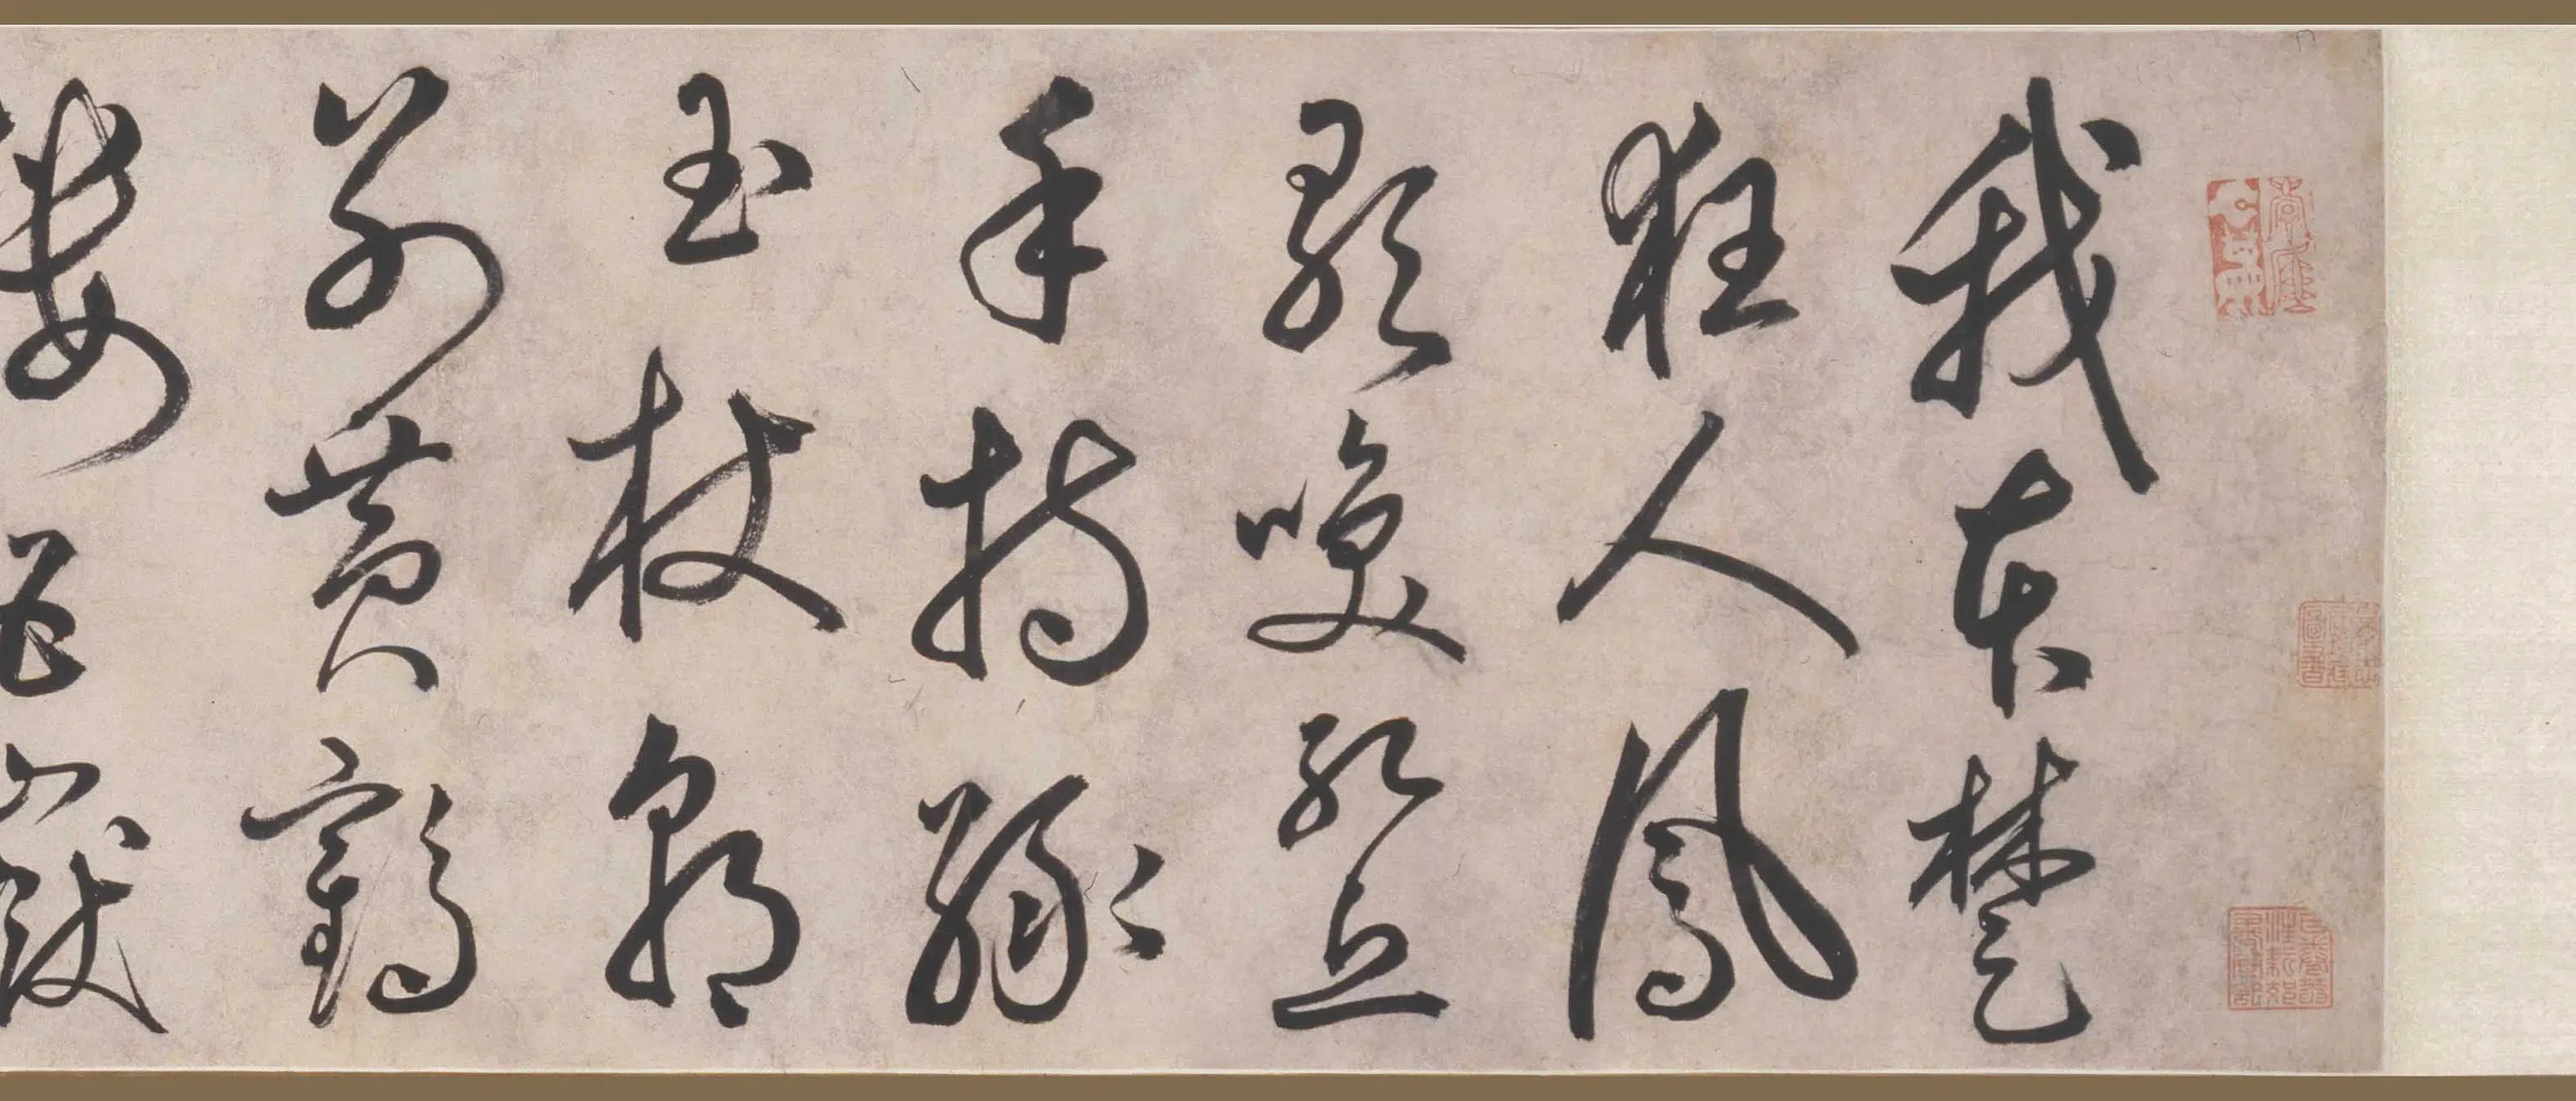 我本楚
狂人鳳
歌喚孔丘
手持綠
玉杖朝
別黃鶴
樓五嶽